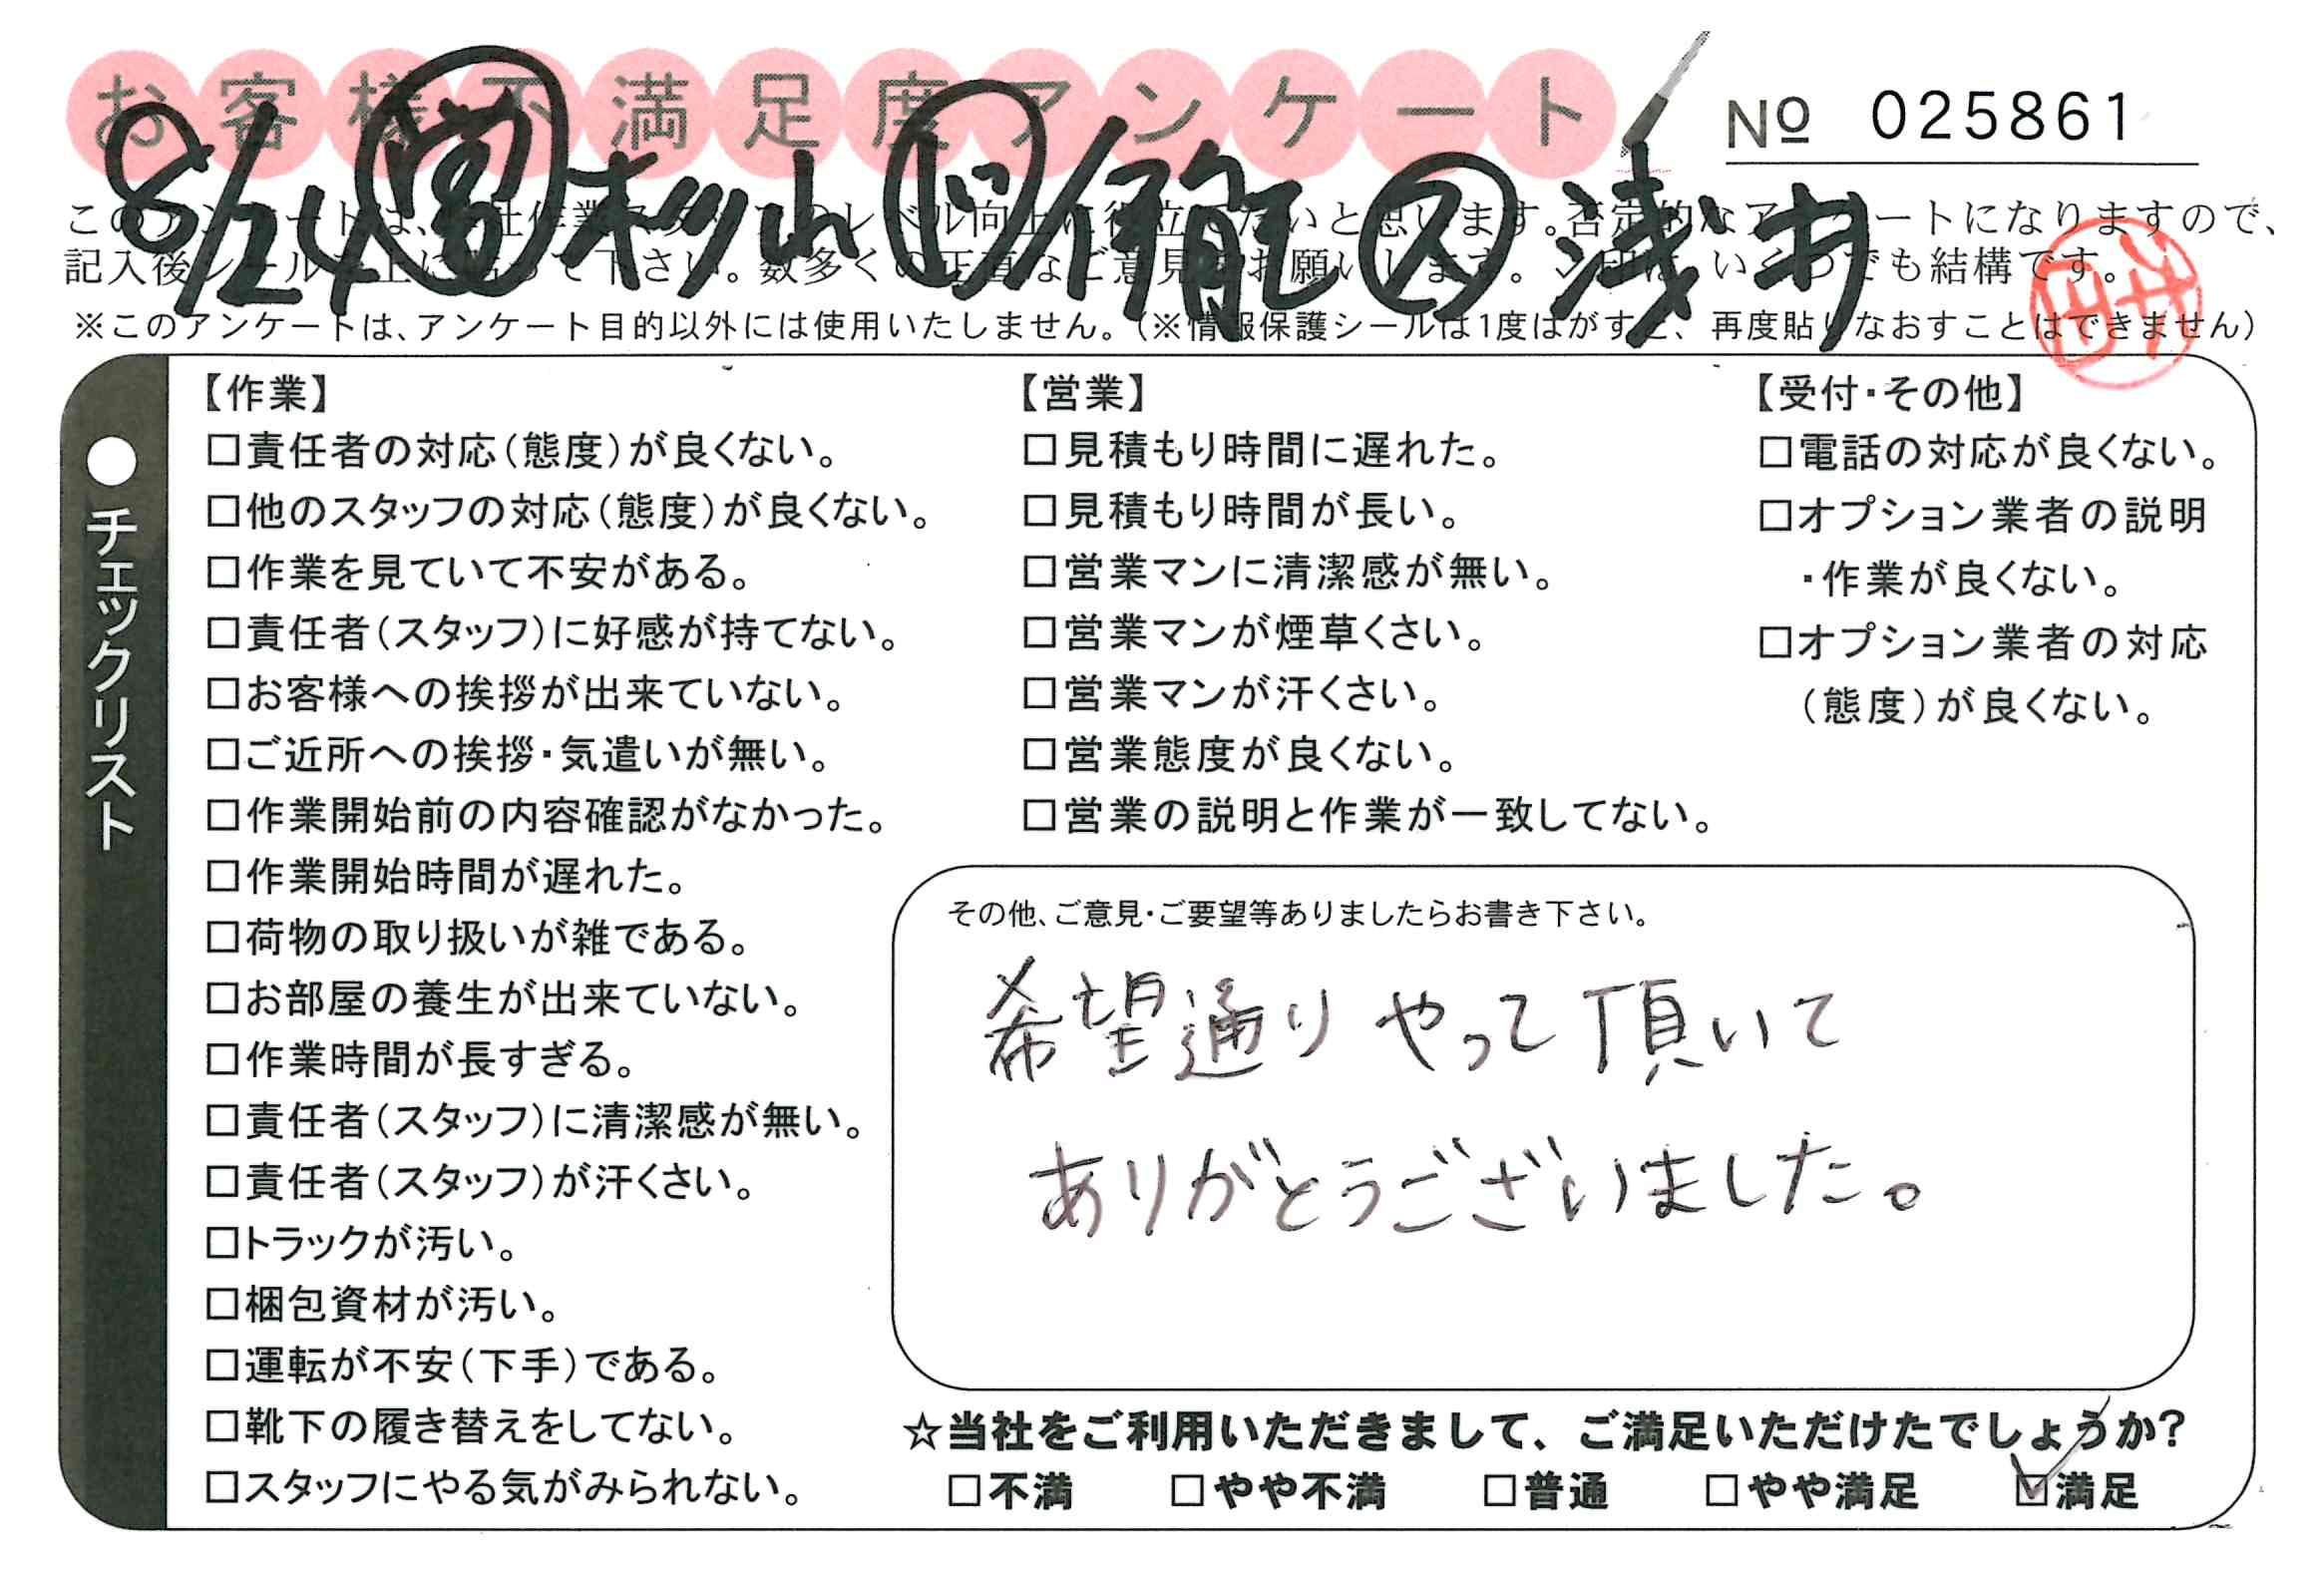 お客様不満足度アンケート
№ 025861
8/24 営 杉山 ド 伊龍 ス 浅井
このアンケートは、当社作業スタッフのレベル向上に役立てたいと思います。否定的なアンケートになりますので、
記入後シールを上に貼って下さい。数多くの正直なご意見をお願いします。レ印は、いくつでも結構です。
※このアンケートは、アンケート目的以外には使用いたしません。（※情報保護シールは1度はがすと、再度貼りなおすことはできません）
●チェックリスト
【作業】
□責任者の対応（態度）が良くない。
□他のスタッフの対応（態度）が良くない。
□作業を見ていて不安がある。
□責任者（スタッフ）に好感が持てない。
□お客様への挨拶が出来ていない。
□ご近所への挨拶・気遣いが無い。
□作業開始前の内容確認がなかった。
□作業開始時間が遅れた。
□荷物の取り扱いが雑である。
□お部屋の養生が出来ていない。
□作業時間が長すぎる。
□責任者（スタッフ）に清潔感が無い。
□責任者（スタッフ）が汗くさい。
□トラックが汚い。
□梱包資材が汚い。
□運転が不安（下手）である。
□靴下の履き替えをしてない。
□スタッフにやる気がみられない。
【営業】
□見積もり時間に遅れた。
□見積もり時間が長い。
□営業マンに清潔感が無い。
□営業マンが煙草くさい。
□営業マンが汗くさい。
□営業態度が良くない。
□営業の説明と作業が一致してない。
【受付・その他】
□電話の対応が良くない。
□オプション業者の説明
・作業が良くない。
□オプション業者の対応
（態度）が良くない。
その他、ご意見・ご要望等ありましたらお書き下さい。
希望通りやって頂いて
ありがとうございました。
☆当社をご利用いただきまして、ご満足いただけたでしょうか？
□不満 □やや不満 □普通 □やや満足 ☑満足